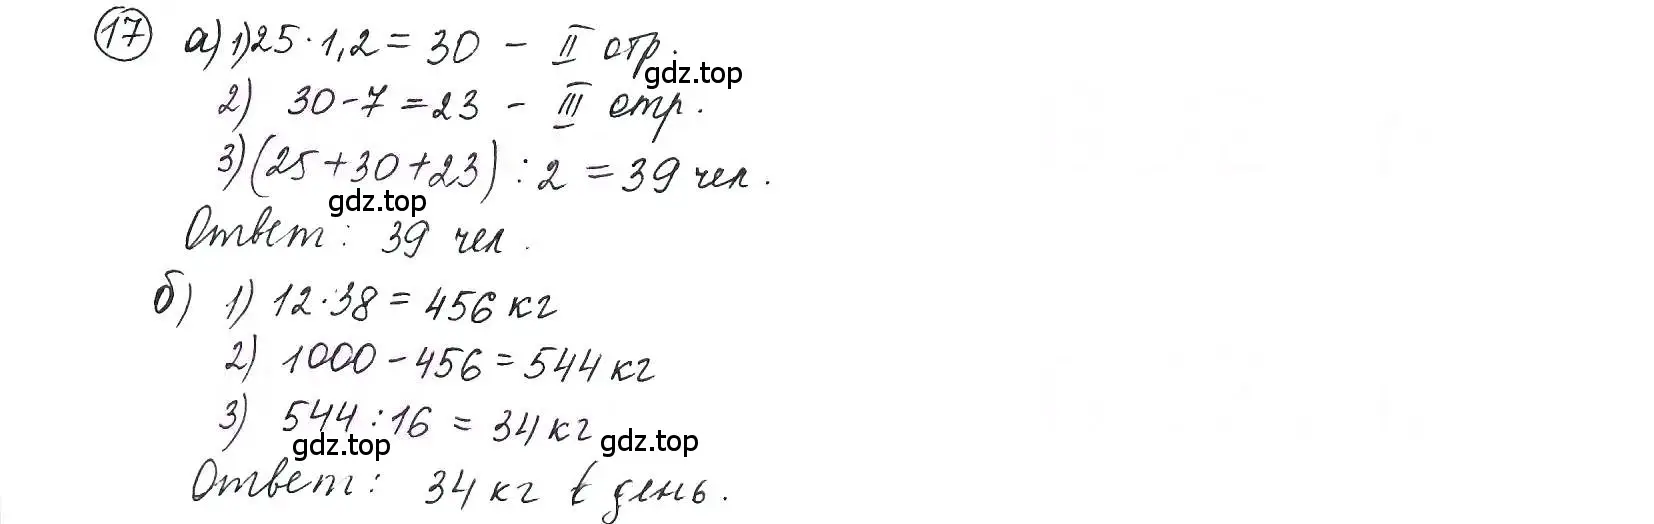 17 а) 1) 25 · 1,2 = 30 - II отр.
gdz.top
2) 30 - 7 = 23 - III отр.
3) (25 + 30 + 23) : 2 = 39 чел.
gdz.top
Ответ: 39 чел.
б) 1) 12 · 38 = 456 кг
2) 1000 - 456 = 544 кг
3) 544 : 16 = 34 кг
gdz.top gdz.top
Ответ: 34 кг в день.